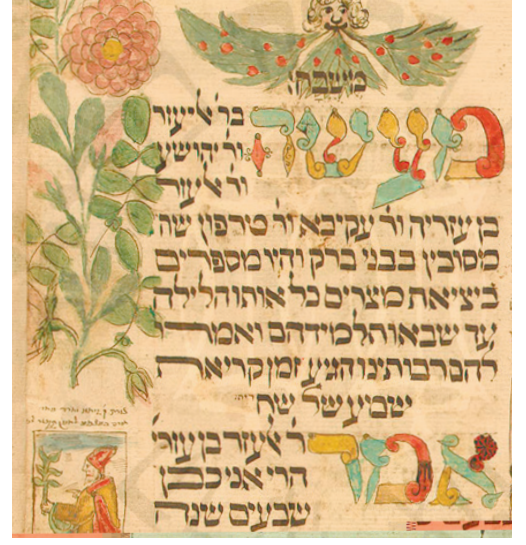 משבח:
מעשה
בר׳ אליעזר
ור׳ יהושע
ור׳ אלעזר
בן עזריה ור׳ עקיבא ור׳ טרפון שהיו
מסובין בבני ברק והיו מספרים
ביציאת מצרים כל אותו הלילה
עד שבאו תלמידיהם ואמרו
להם רבותינו הגיע זמן קריאת
שמע של שחרית׃
אמר
ר׳ אלעזר בן עזריה
הרי אני כבן
שבעים שנה